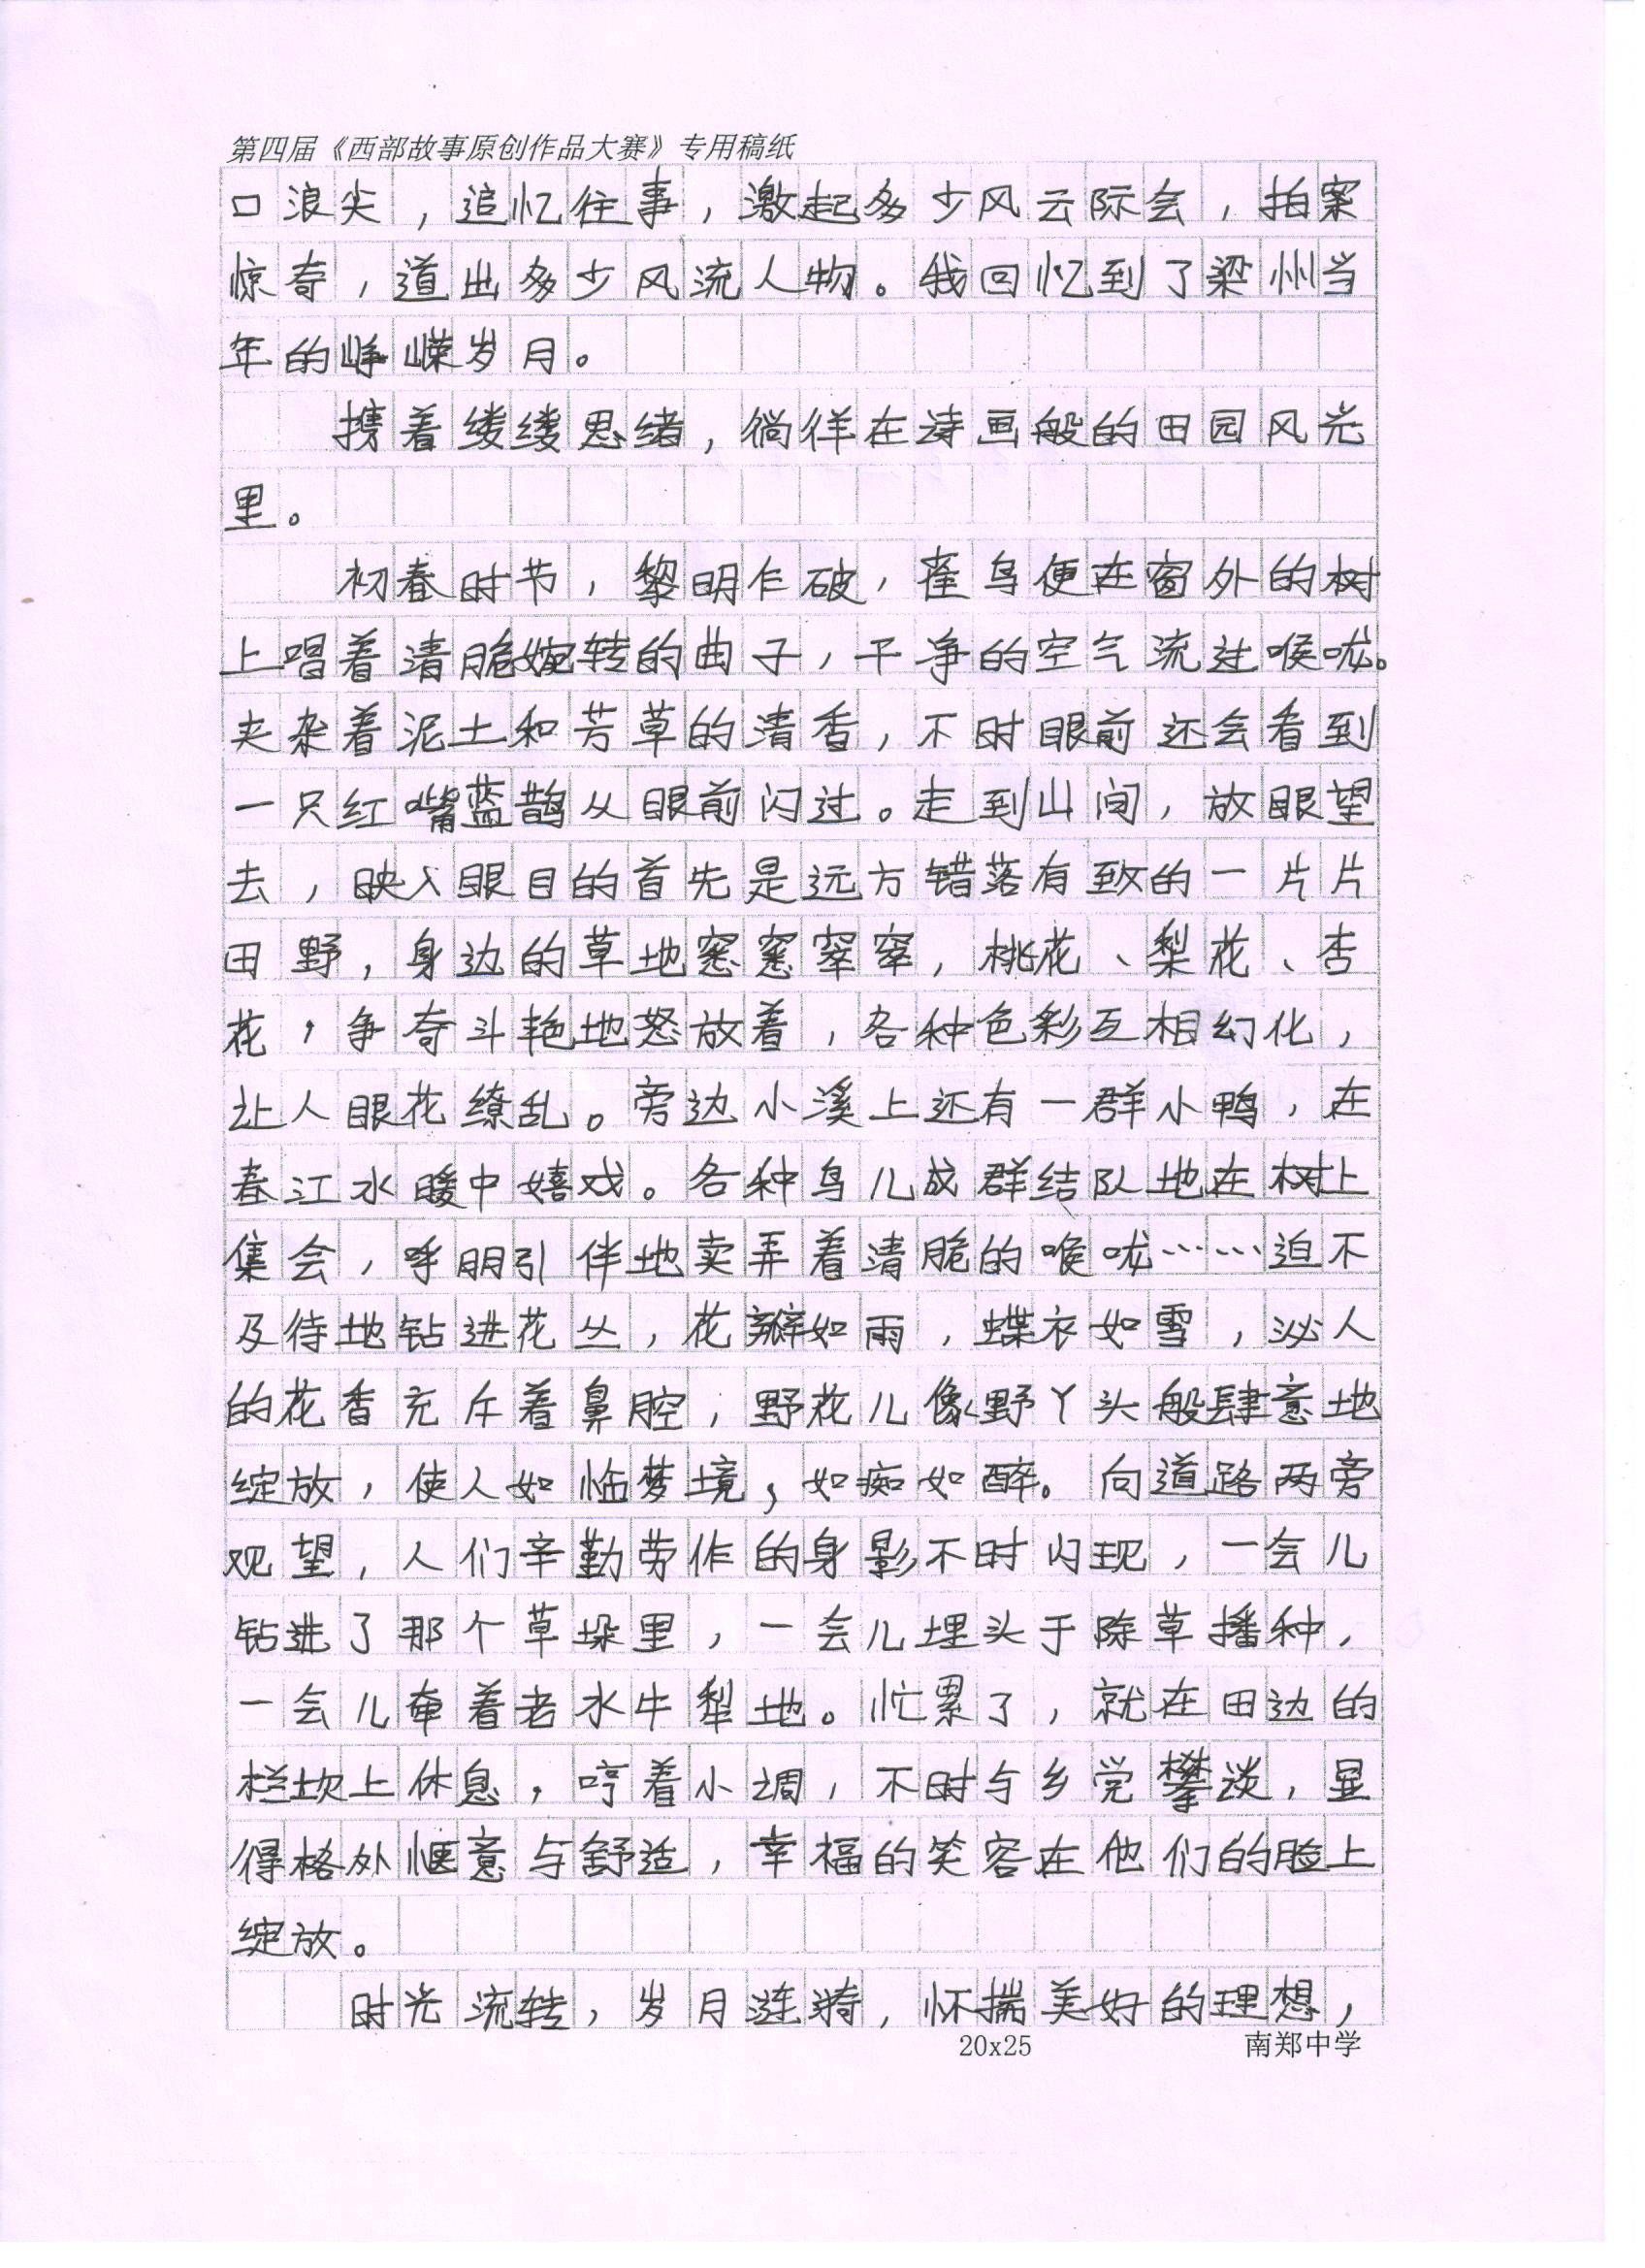 第四届《西部故事原创作品大赛》专用稿纸
口浪尖，追忆往事，激起多少风云际会，拍案
惊奇，道出多少风流人物。我回忆到了梁州当
年的峥嵘岁月。
携着缕缕思绪，徜徉在诗画般的田园风光
里。
初春时节，黎明乍破，雀鸟便在窗外的树
上唱着清脆婉转的曲子，干净的空气流过喉咙。
夹杂着泥土和芳草的清香，不时眼前还会看到
一只红嘴蓝鹊从眼前闪过。走到山间，放眼望
去，映入眼目的首先是远方错落有致的一片片
田野，身边的草地窸窸窣窣，桃花、梨花、杏
花，争奇斗艳地怒放着，各种色彩互相幻化，
让人眼花缭乱。旁边小溪上还有一群小鸭，在
春江水暖中嬉戏。各种鸟儿成群结队地在树上
集会，呼朋引伴地卖弄着清脆的喉咙……迫不
及待地钻进花丛，花瓣如雨，蝶衣如雪，泌人
的花香充斥着鼻腔，野花儿像野丫头般肆意地
绽放，使人如临梦境，如痴如醉。向道路两旁
观望，人们辛勤劳作的身影不时闪现，一会儿
钻进了那个草垛里，一会儿埋头于除草播种，
一会儿牵着老水牛犁地。忙累了，就在田边的
栏坎上休息，哼着小调，不时与乡党攀谈，显
得格外惬意与舒适，幸福的笑容在他们的脸上
绽放。
时光流转，岁月涟漪，怀揣美好的理想，
20x25 南郑中学